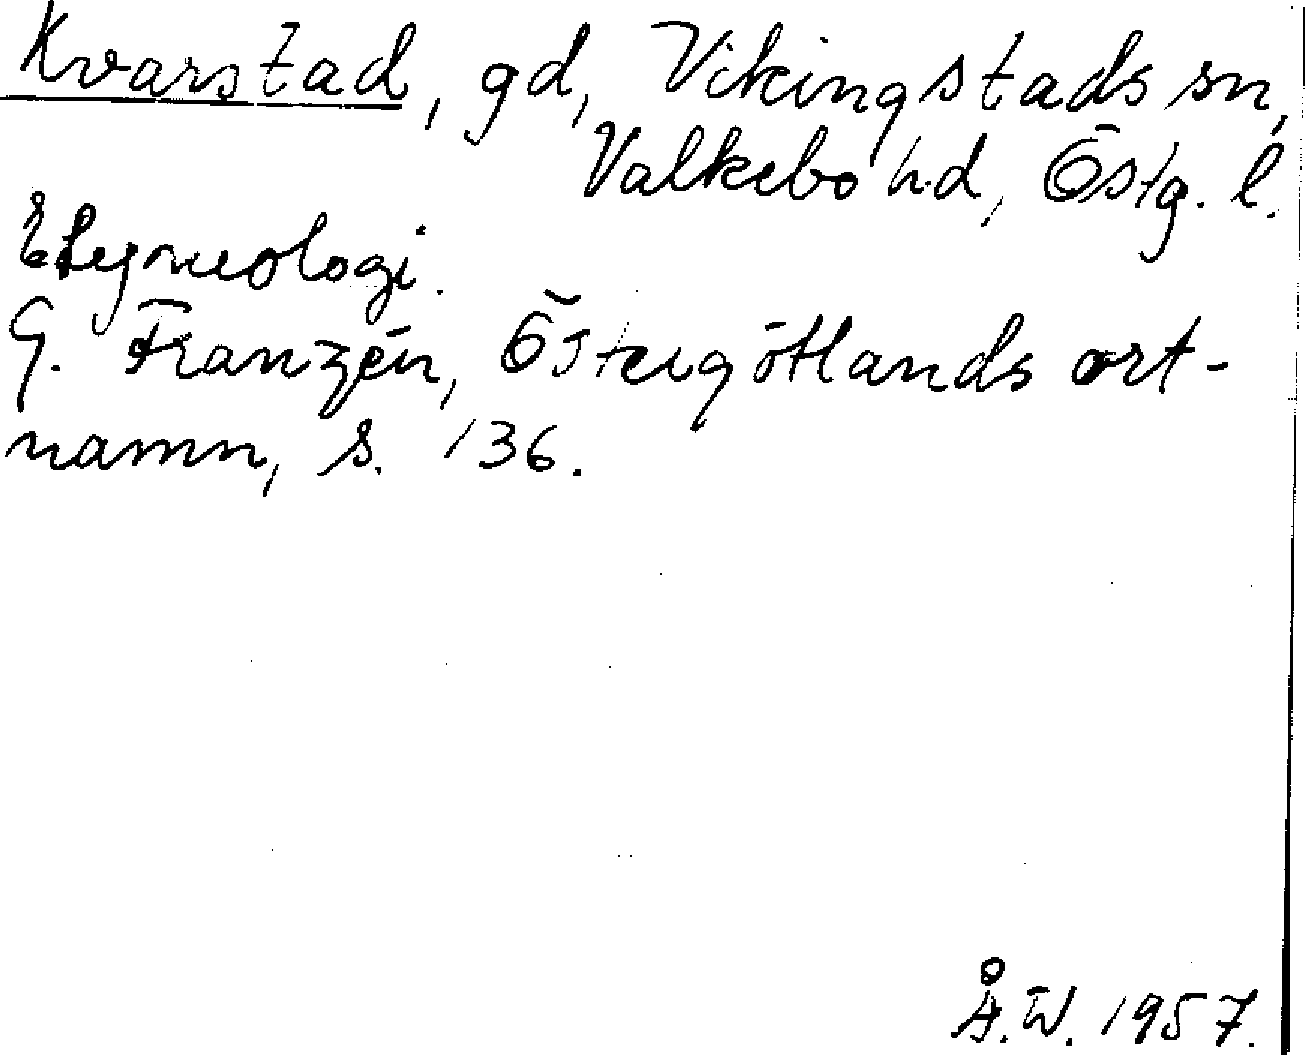 Kvarstad, gd, Vikingstads sn,
Valkebo hd, Östg. l.
Etymologi.
G. Franzén, Östergötlands ort-
namn, s. 136.
Å.W. 1957.